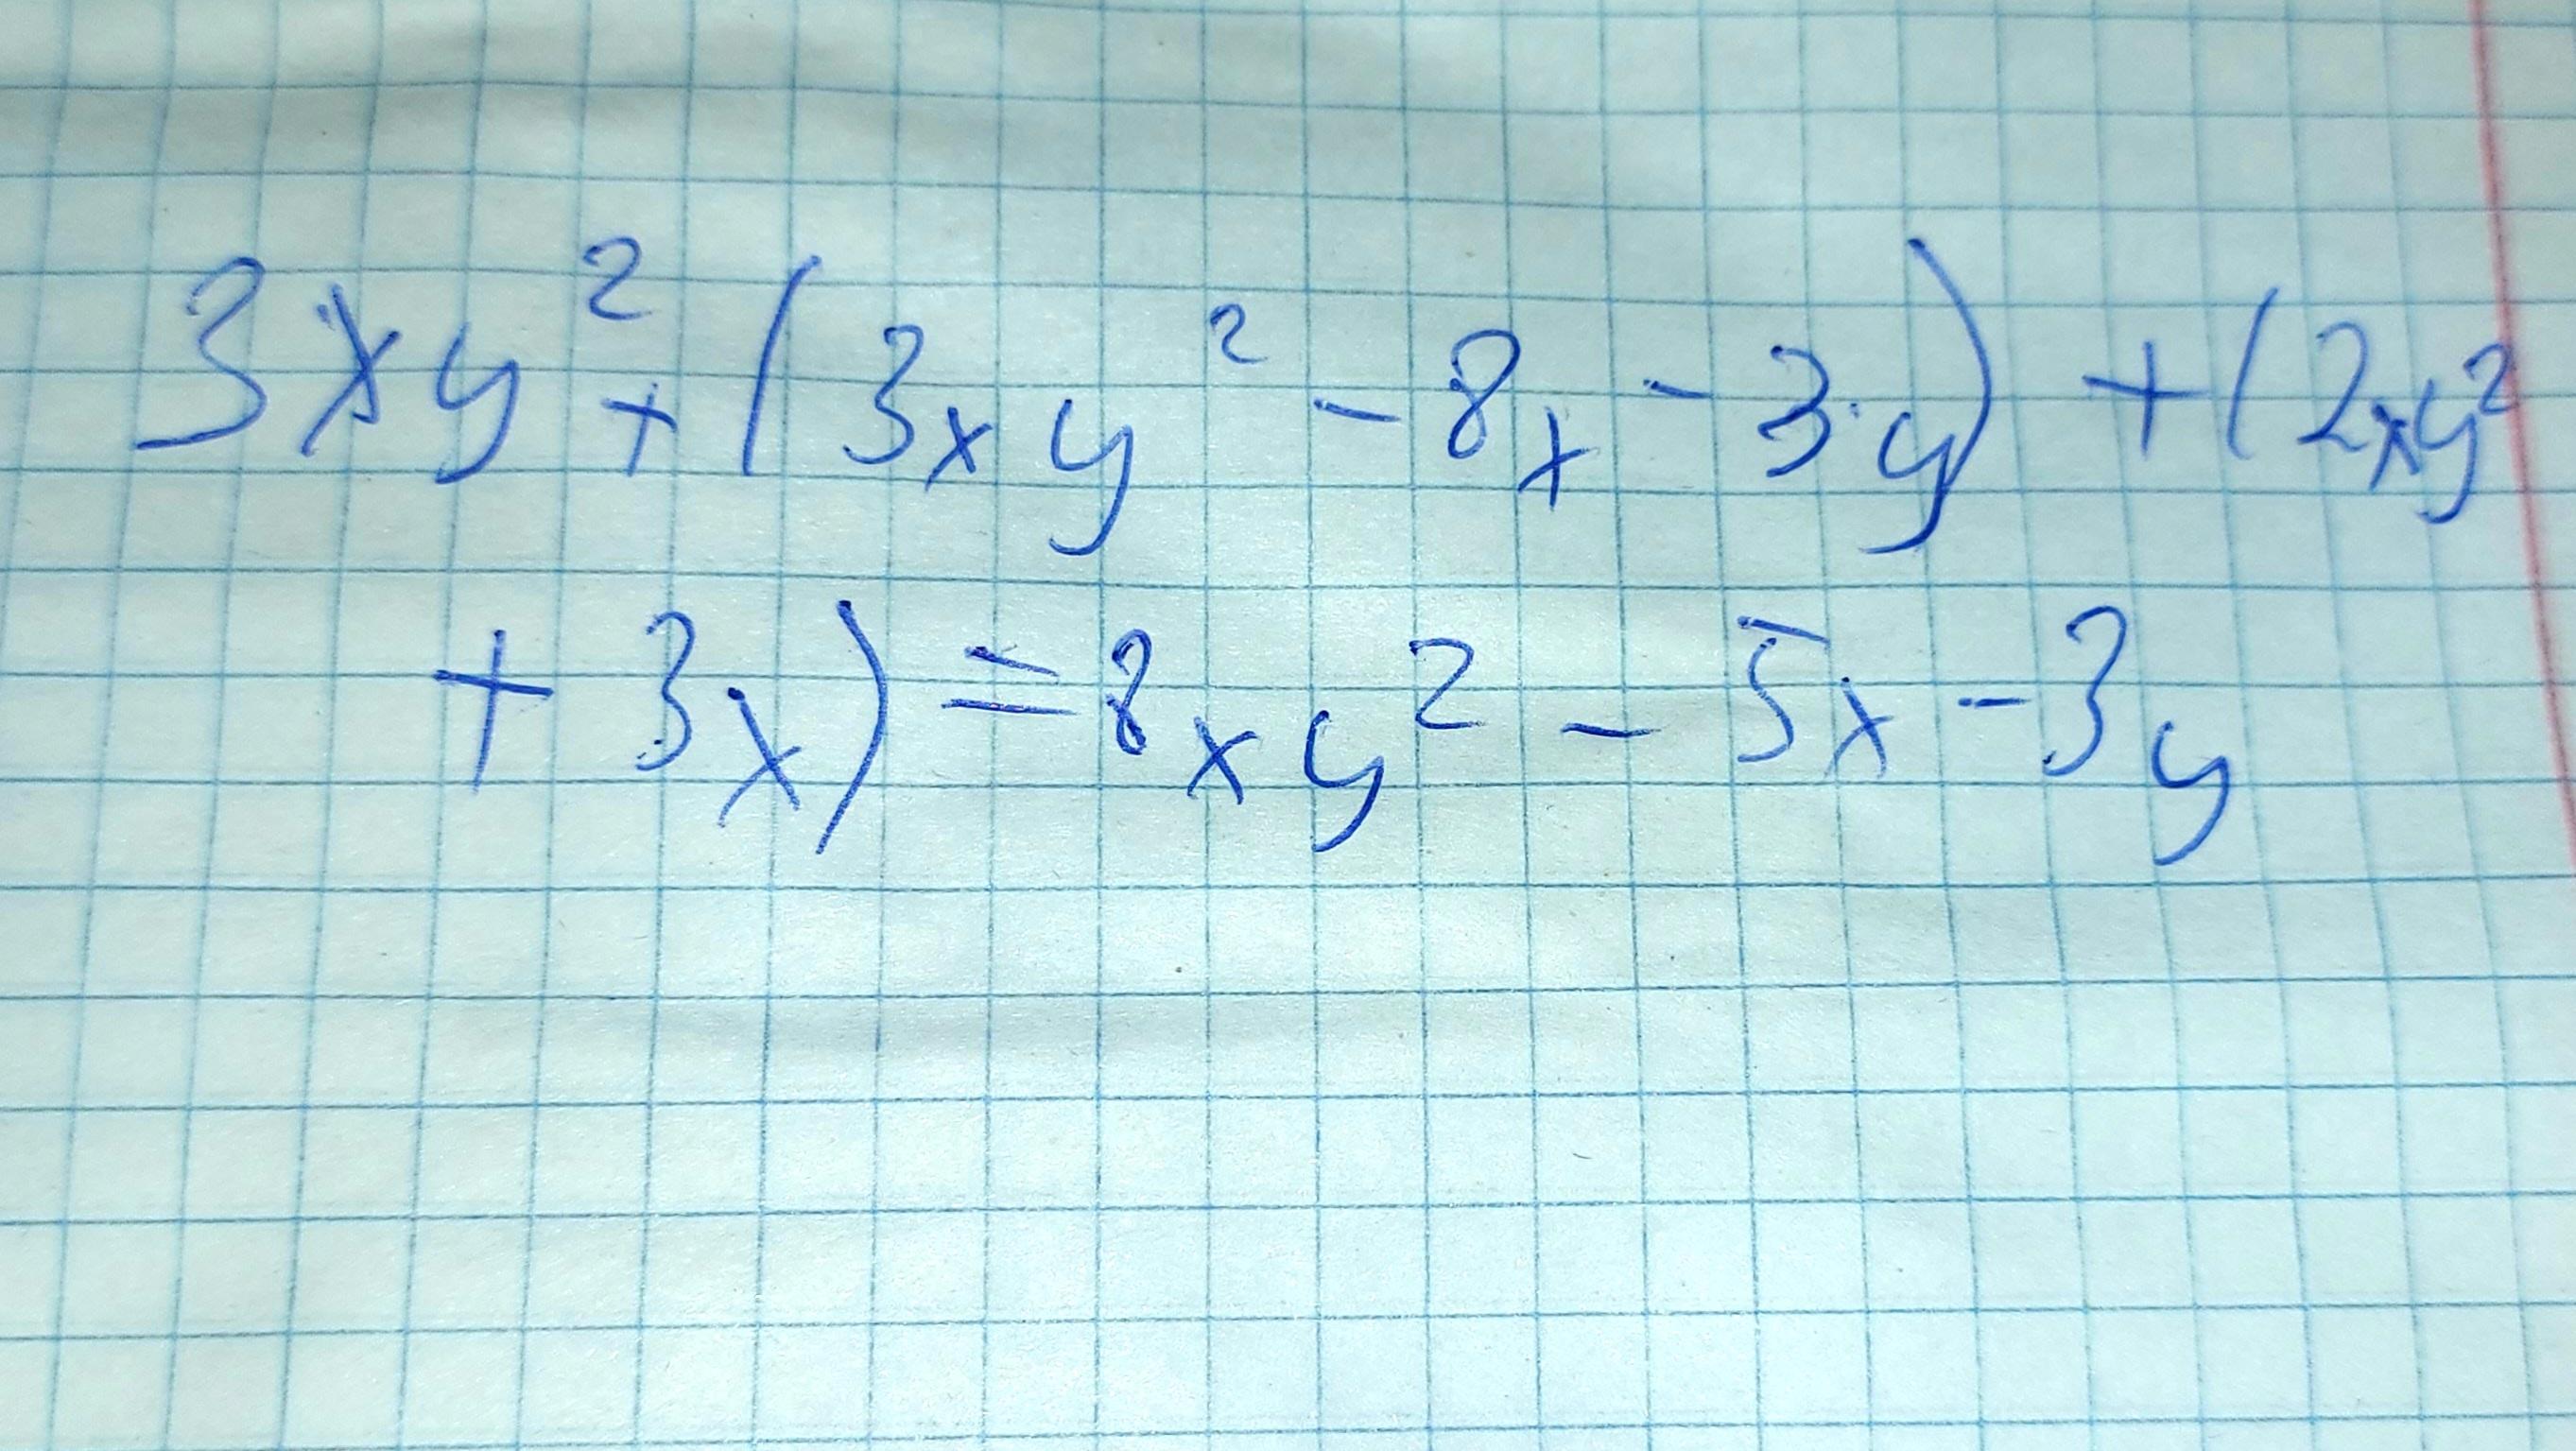 3xy² + (3xy² - 8x - 3y) + (2xy²
+ 3x) = 8xy² - 5x - 3y